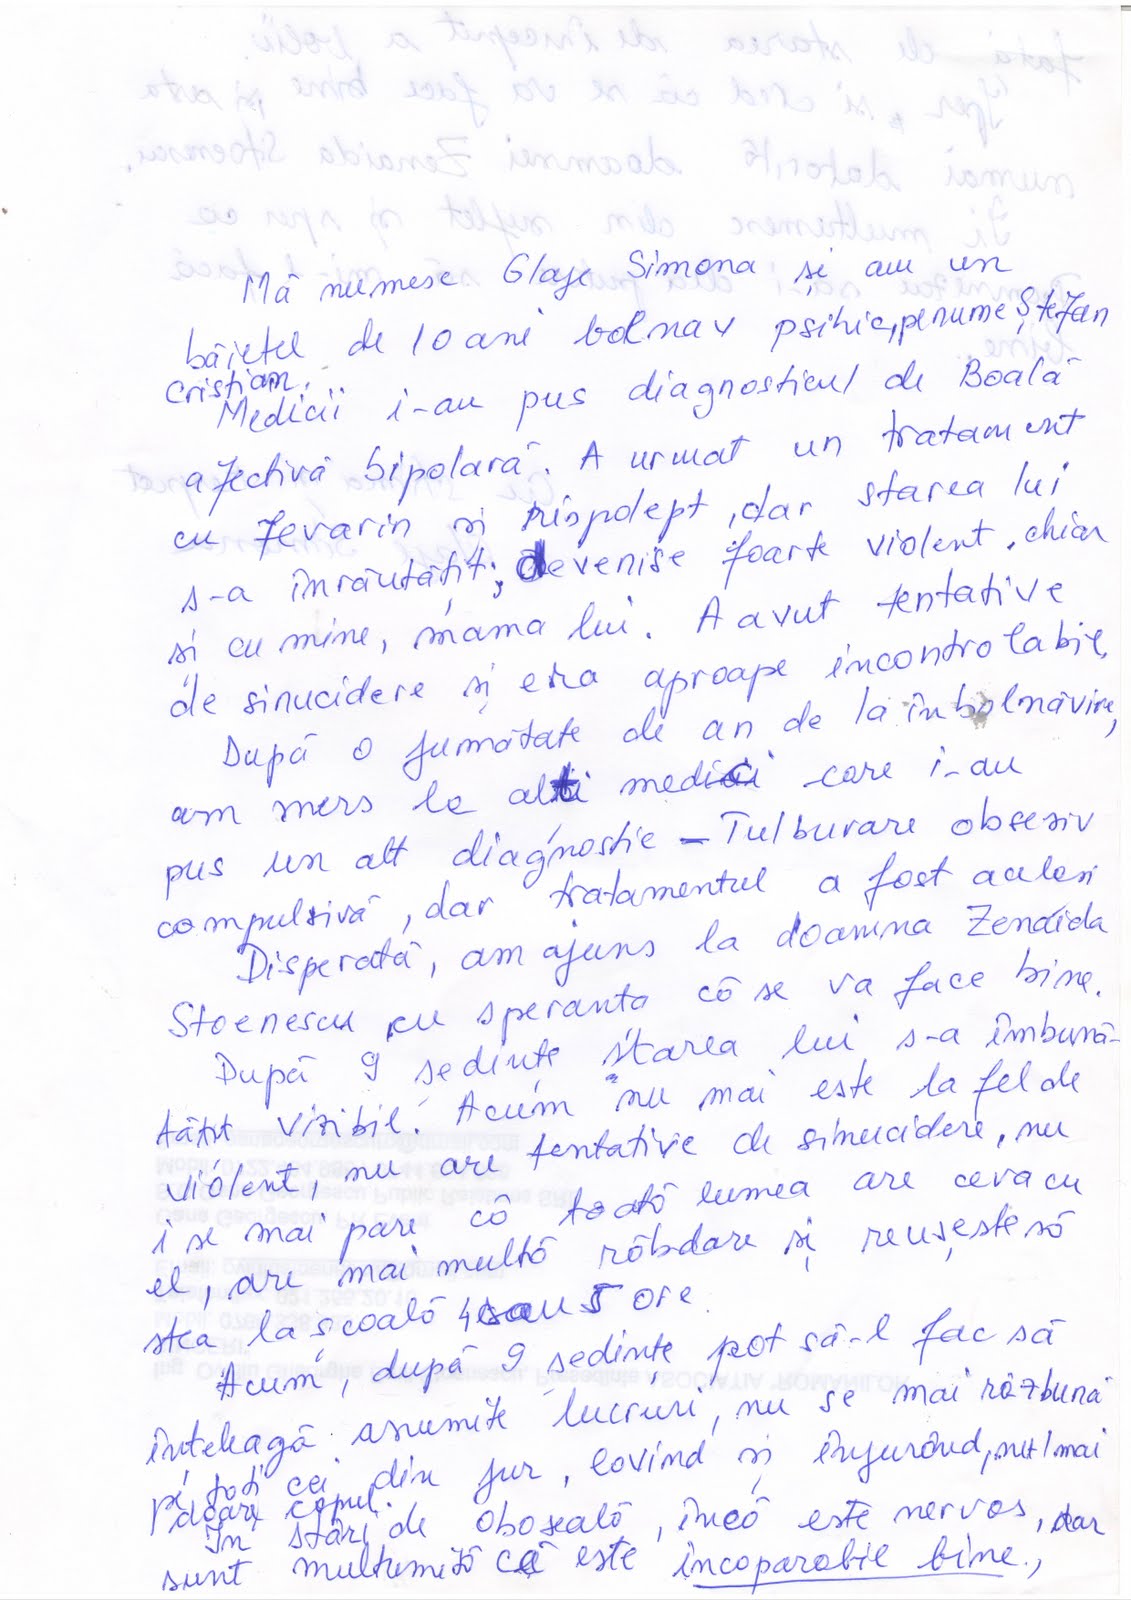 Mă numesc Glaje Simona și am un
băiețel de 10 ani bolnav psihic, pe nume Ștefan
Cristian.
Medicii i-au pus diagnosticul de Boală
afectivă bipolară. A urmat un tratament
cu Fevarin și Rispolept, dar starea lui
s-a înrăutățit; devenise foarte violent, chiar
si cu mine, mama lui. A avut tentative
de sinucidere și era aproape incontrolabil,
După o jumătate de an de la înbolnăvire,
am mers la alti medici care i-au
pus un alt diagnostic - Tulburare obsesiv
compulsivă, dar tratamentul a fost acelasi
Disperată, am ajuns la doamna Zenaida
Stoenescu cu speranta că se va face bine.
După 9 ședințe starea lui s-a îmbună-
tățit vizibil. Acum nu mai este la fel de
violent, nu are tentative de sinucidere, nu
i se mai pare că toată lumea are ceva cu
el, are mai multă răbdare și reușește să
stea la școală 4 sau 5 ore.
Acum, după 9 ședințe pot să-l fac să
înteleagă anumite lucruri, nu se mai răzbună
pe toți cei din jur, lovind și înjurând, nu-l mai
doare capul.
In stări de oboseală, încă este nervos, dar
sunt multumită că este incoparabil bine.,